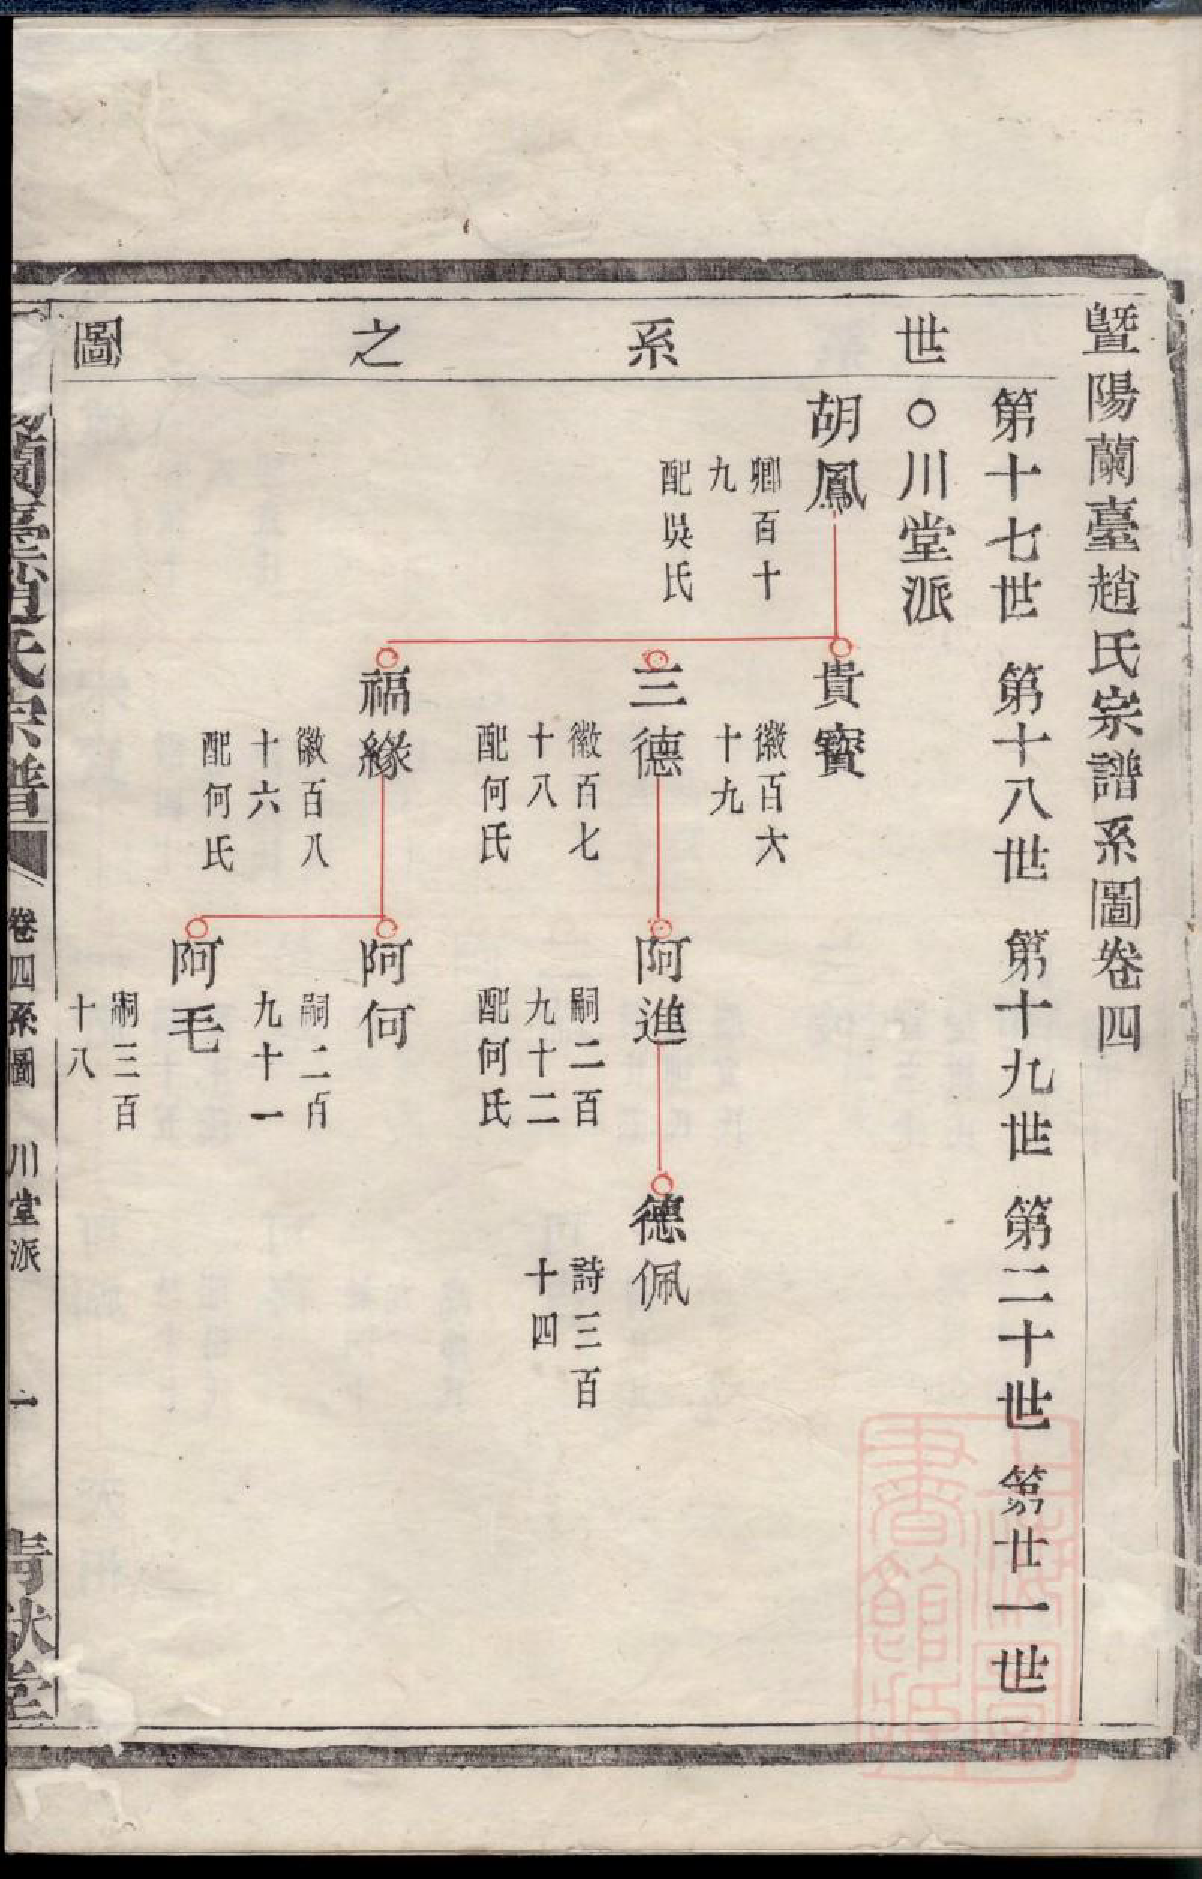 暨陽蘭臺趙氏宗譜系圖卷四
世系之圖
第十七世 第十八世 第十九世 第二十世 第廿一世
○川堂派
胡鳳
卿百十
九
配吳氏
貴寶
徽百六
十九
三德
徽百七
十八
配何氏
阿進
嗣二百
九十二
配何氏
德佩
詩三百
十四
福緣
徽百八
十六
配何氏
阿何
嗣二百
九十一
阿毛
嗣三百
十八
蘭臺趙氏宗譜
卷四系圖 川堂派 一